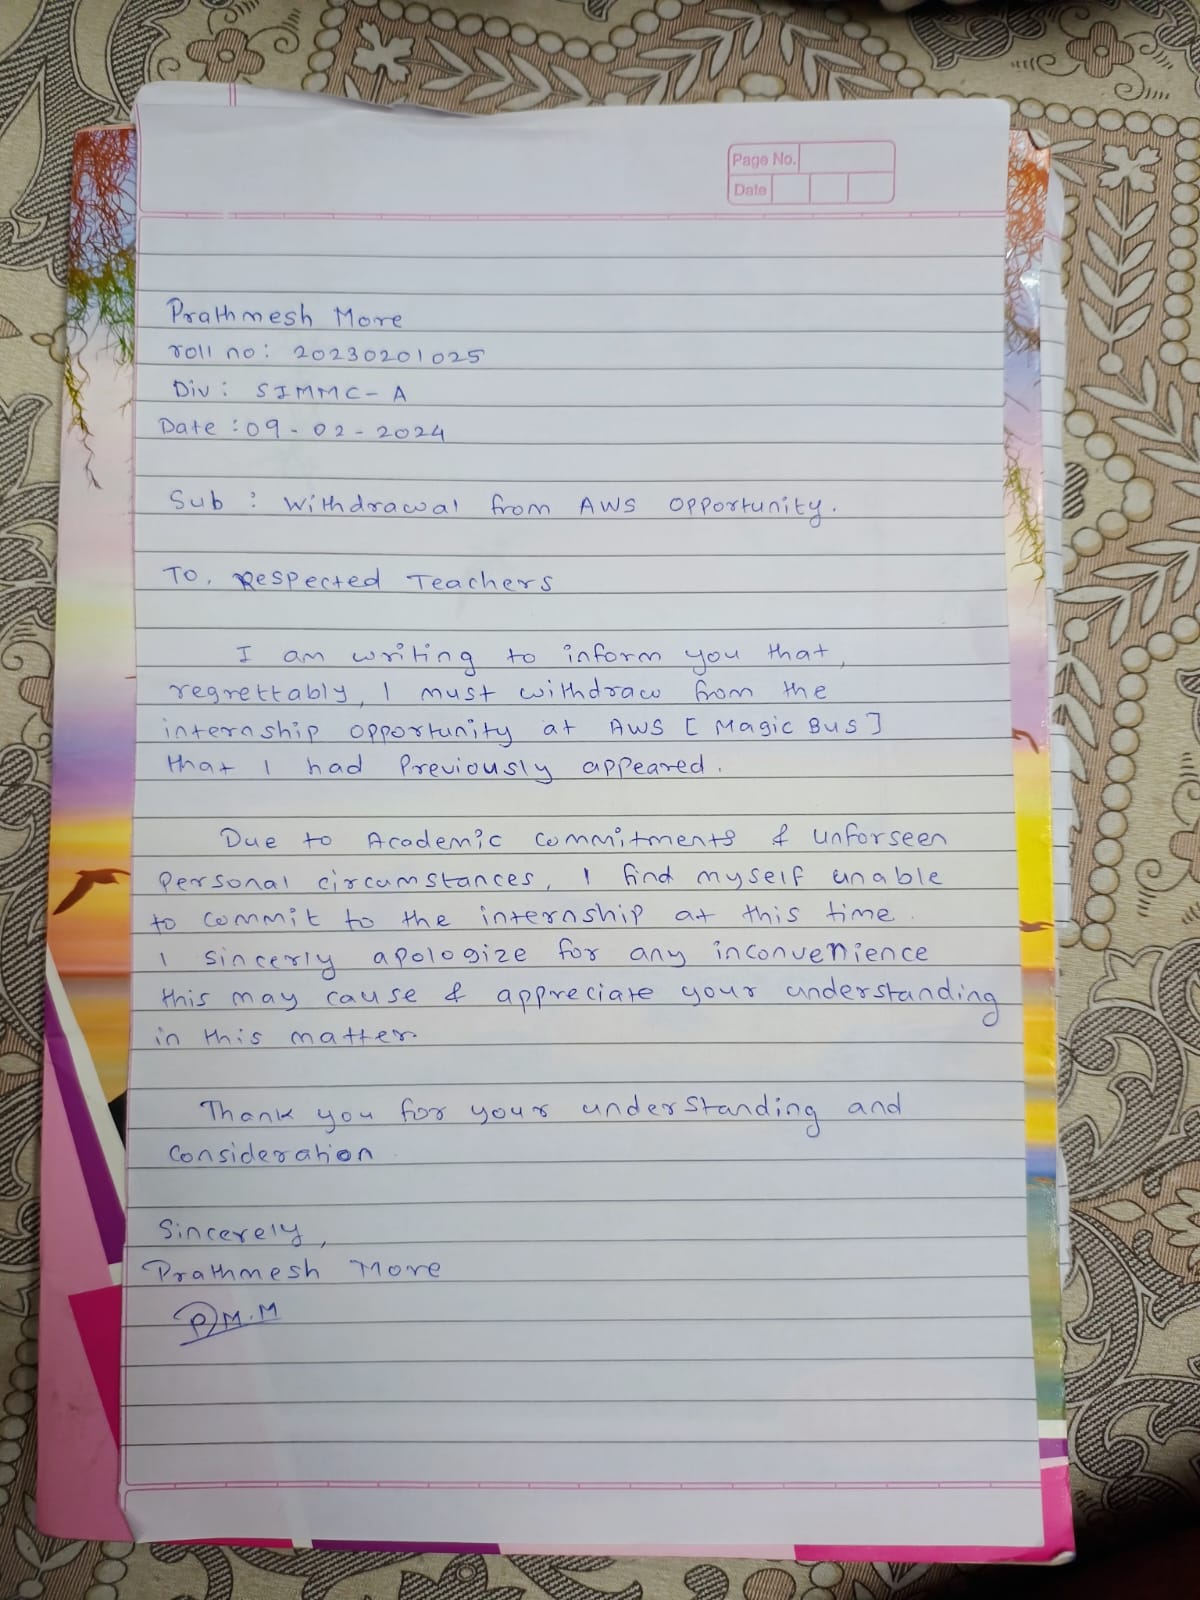 Page No.
Date
Prathmesh More
roll no: 20230201025
Div: SIMMC-A
Date: 09-02-2024
Sub: Withdrawal from AWS opportunity.
To, Respected Teachers
I am writing to inform you that,
regrettably, I must withdraw from the
internship opportunity at AWS [Magic Bus]
that I had Previously appeared.
Due to Academic commitments & unforseen
personal circumstances, I find myself unable
to commit to the internship at this time.
I sincerly apologize for any inconvenience
this may cause & appreciate your understanding
in this matter.
Thank you for your understanding and
consideration
Sincerely,
Prathmesh More
P.M.M